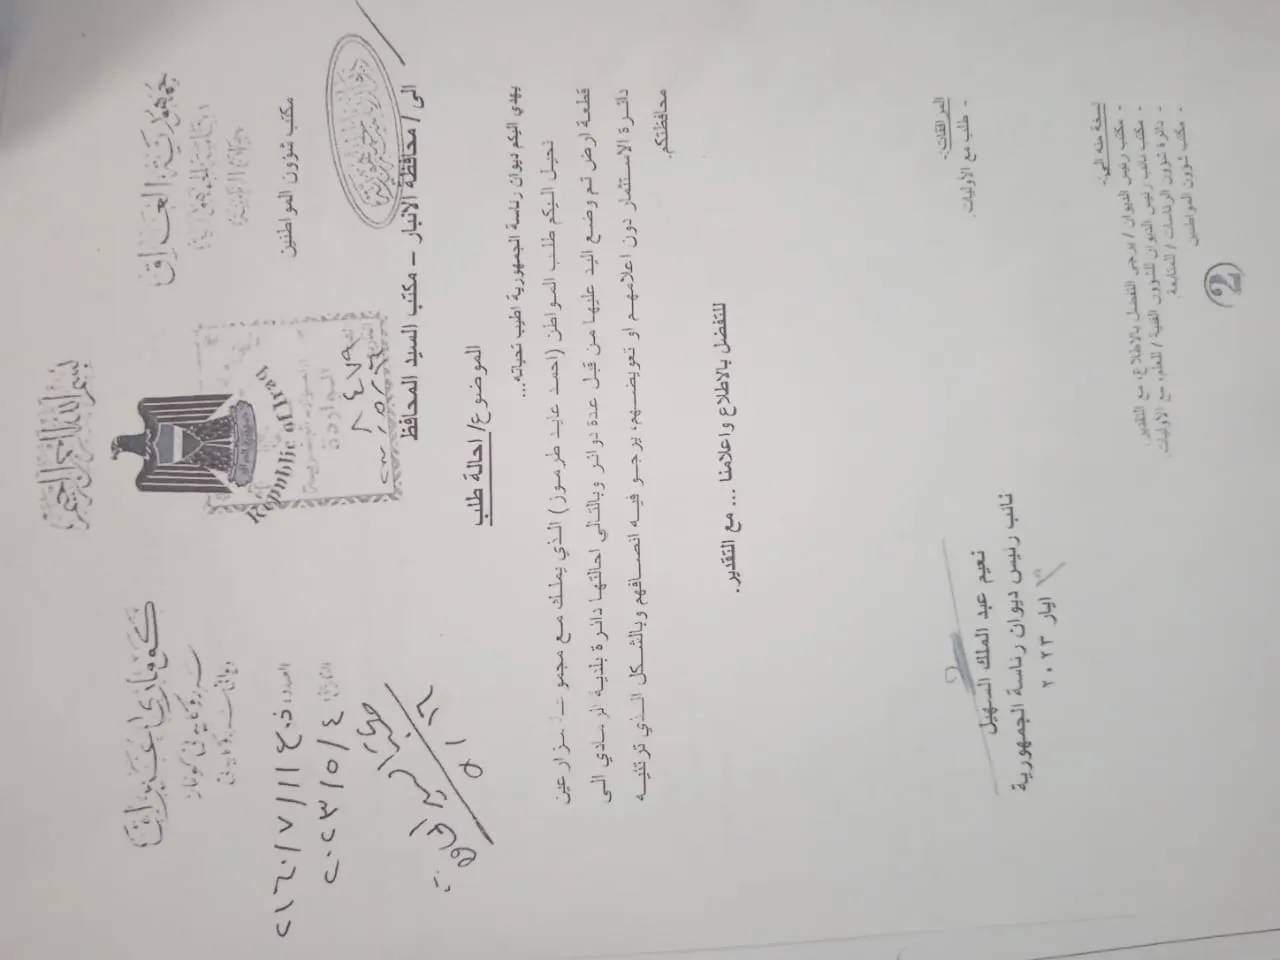 بسم الله الرحمن الرحيم
جمهورية العراق
رئاسة الجمهورية
مكتب شؤون المواطنين
Republic of Iraq
كوماري عيراق
العدد: ذ.ع/١١/٧/
التاريخ: ٢٠٢٣/٥/٤
الواردة
٨٤٧٩
الى / محافظة الانبار – مكتب السيد المحافظ
الموضوع/ احالة طلب
يهدي اليكم ديوان رئاسة الجمهورية اطيب تحياته...
نحيل اليكم طلب المواطن (احمد عايد طرموز) الذي يملك مع مجموعة مزارعين
قطعة ارض تم وضع اليد عليها من قبل عدة دوائر وبالتالي احالتها دائرة بلدية الرمادي الى
دائرة الاستثمار دون اعلامهم او تعويضهم، يرجو فيه انصافهم وبالشكل الذي ترتئيه
محافظتكم.
للتفضل بالاطلاع واعلامنا ... مع التقدير.
نعيم عبد الملك السهيل
نائب رئيس ديوان رئاسة الجمهورية
ايار ٢٠٢٣
المرافقات:
- طلب مع الأوليات.
نسخة منه الى:
- مكتب رئيس الديوان / يرجى التفضل بالاطلاع، مع التقدير.
- مكتب نائب رئيس الديوان للشؤون الفنية / للعلم، مع الأوليات.
- دائرة شؤون الرئاسات / للمتابعة.
- مكتب شؤون المواطنين
2